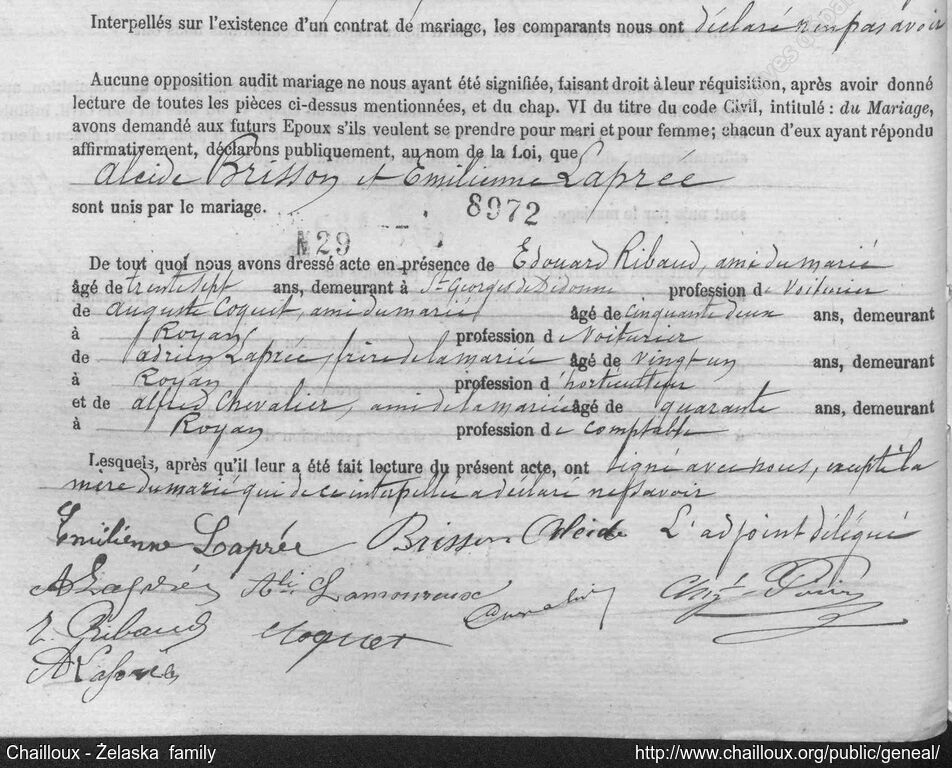 Interpellés sur l'existence d'un contrat de mariage, les comparants nous ont déclaré n'en pas avoir
Aucune opposition audit mariage ne nous ayant été signifiée, faisant droit à leur réquisition, après avoir donné
lecture de toutes les pièces ci-dessus mentionnées, et du chap. VI du titre du code Civil, intitulé : du Mariage,
avons demandé aux futurs Epoux s'ils veulent se prendre pour mari et pour femme; chacun d'eux ayant répondu
affirmativement, déclarons publiquement, au nom de la Loi, que
Alcide Brisson et Emilienne Laprée
sont unis par le mariage.
8972
N29
De tout quoi nous avons dressé acte en présence de Edouard Ribaud, ami du marié
âgé de trente sept ans, demeurant à St Georges de Didonne profession de Voiturier
de Auguste Coquet, ami du marié, âgé de cinquante deux ans, demeurant
à Royan profession de Voiturier
de Adrien Laprée, frère de la mariée âgé de vingt un ans, demeurant
à Royan profession d'horticulteur
et de Alfred Chevalier, ami de la mariée âgé de quarante ans, demeurant
à Royan profession de comptable
Lesquels, après qu'il leur a été fait lecture du présent acte, ont signé avec nous, excepté la
mère du marié qui de ce interpellée a déclaré ne savoir
Emilienne Laprée Brisson Alcide L'adjoint délégué
A Laprée Lamoureux
E. Ribaud Coquet
A Laprée
Chailloux - Żelaska family http://www.chailloux.org/public/geneal/